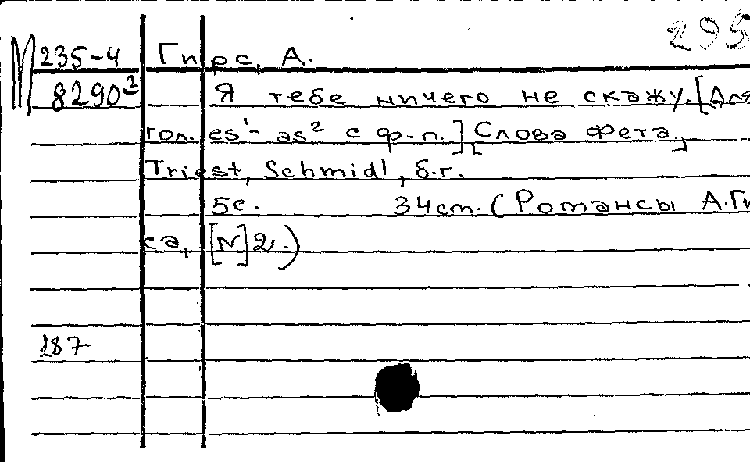 295
М 235-4 Гирс, А.
8290² Я тебе ничего не скажу. [Для
гол. es¹-as² с ф.-п.] [Слова Фета.]
Triest, Schmidl, б.г.
5с. 34см. (Романсы А.Ги
са, [N]2.)
187